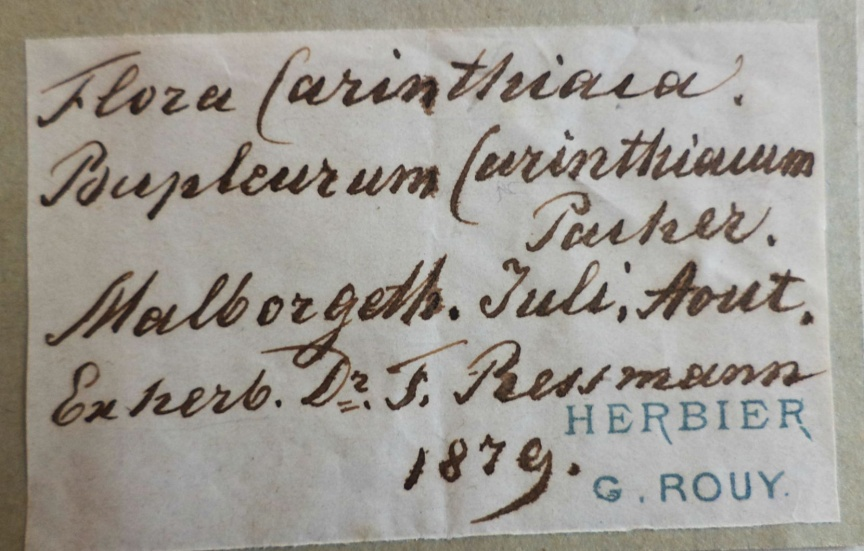 Flora Carinthiaca.
Bupleurum Carinthiacum
Pacher.
Malborgeth. Juli, Aout.
Ex herb. Dr. F. Ressmann
1879.
HERBIER
G. ROUY.